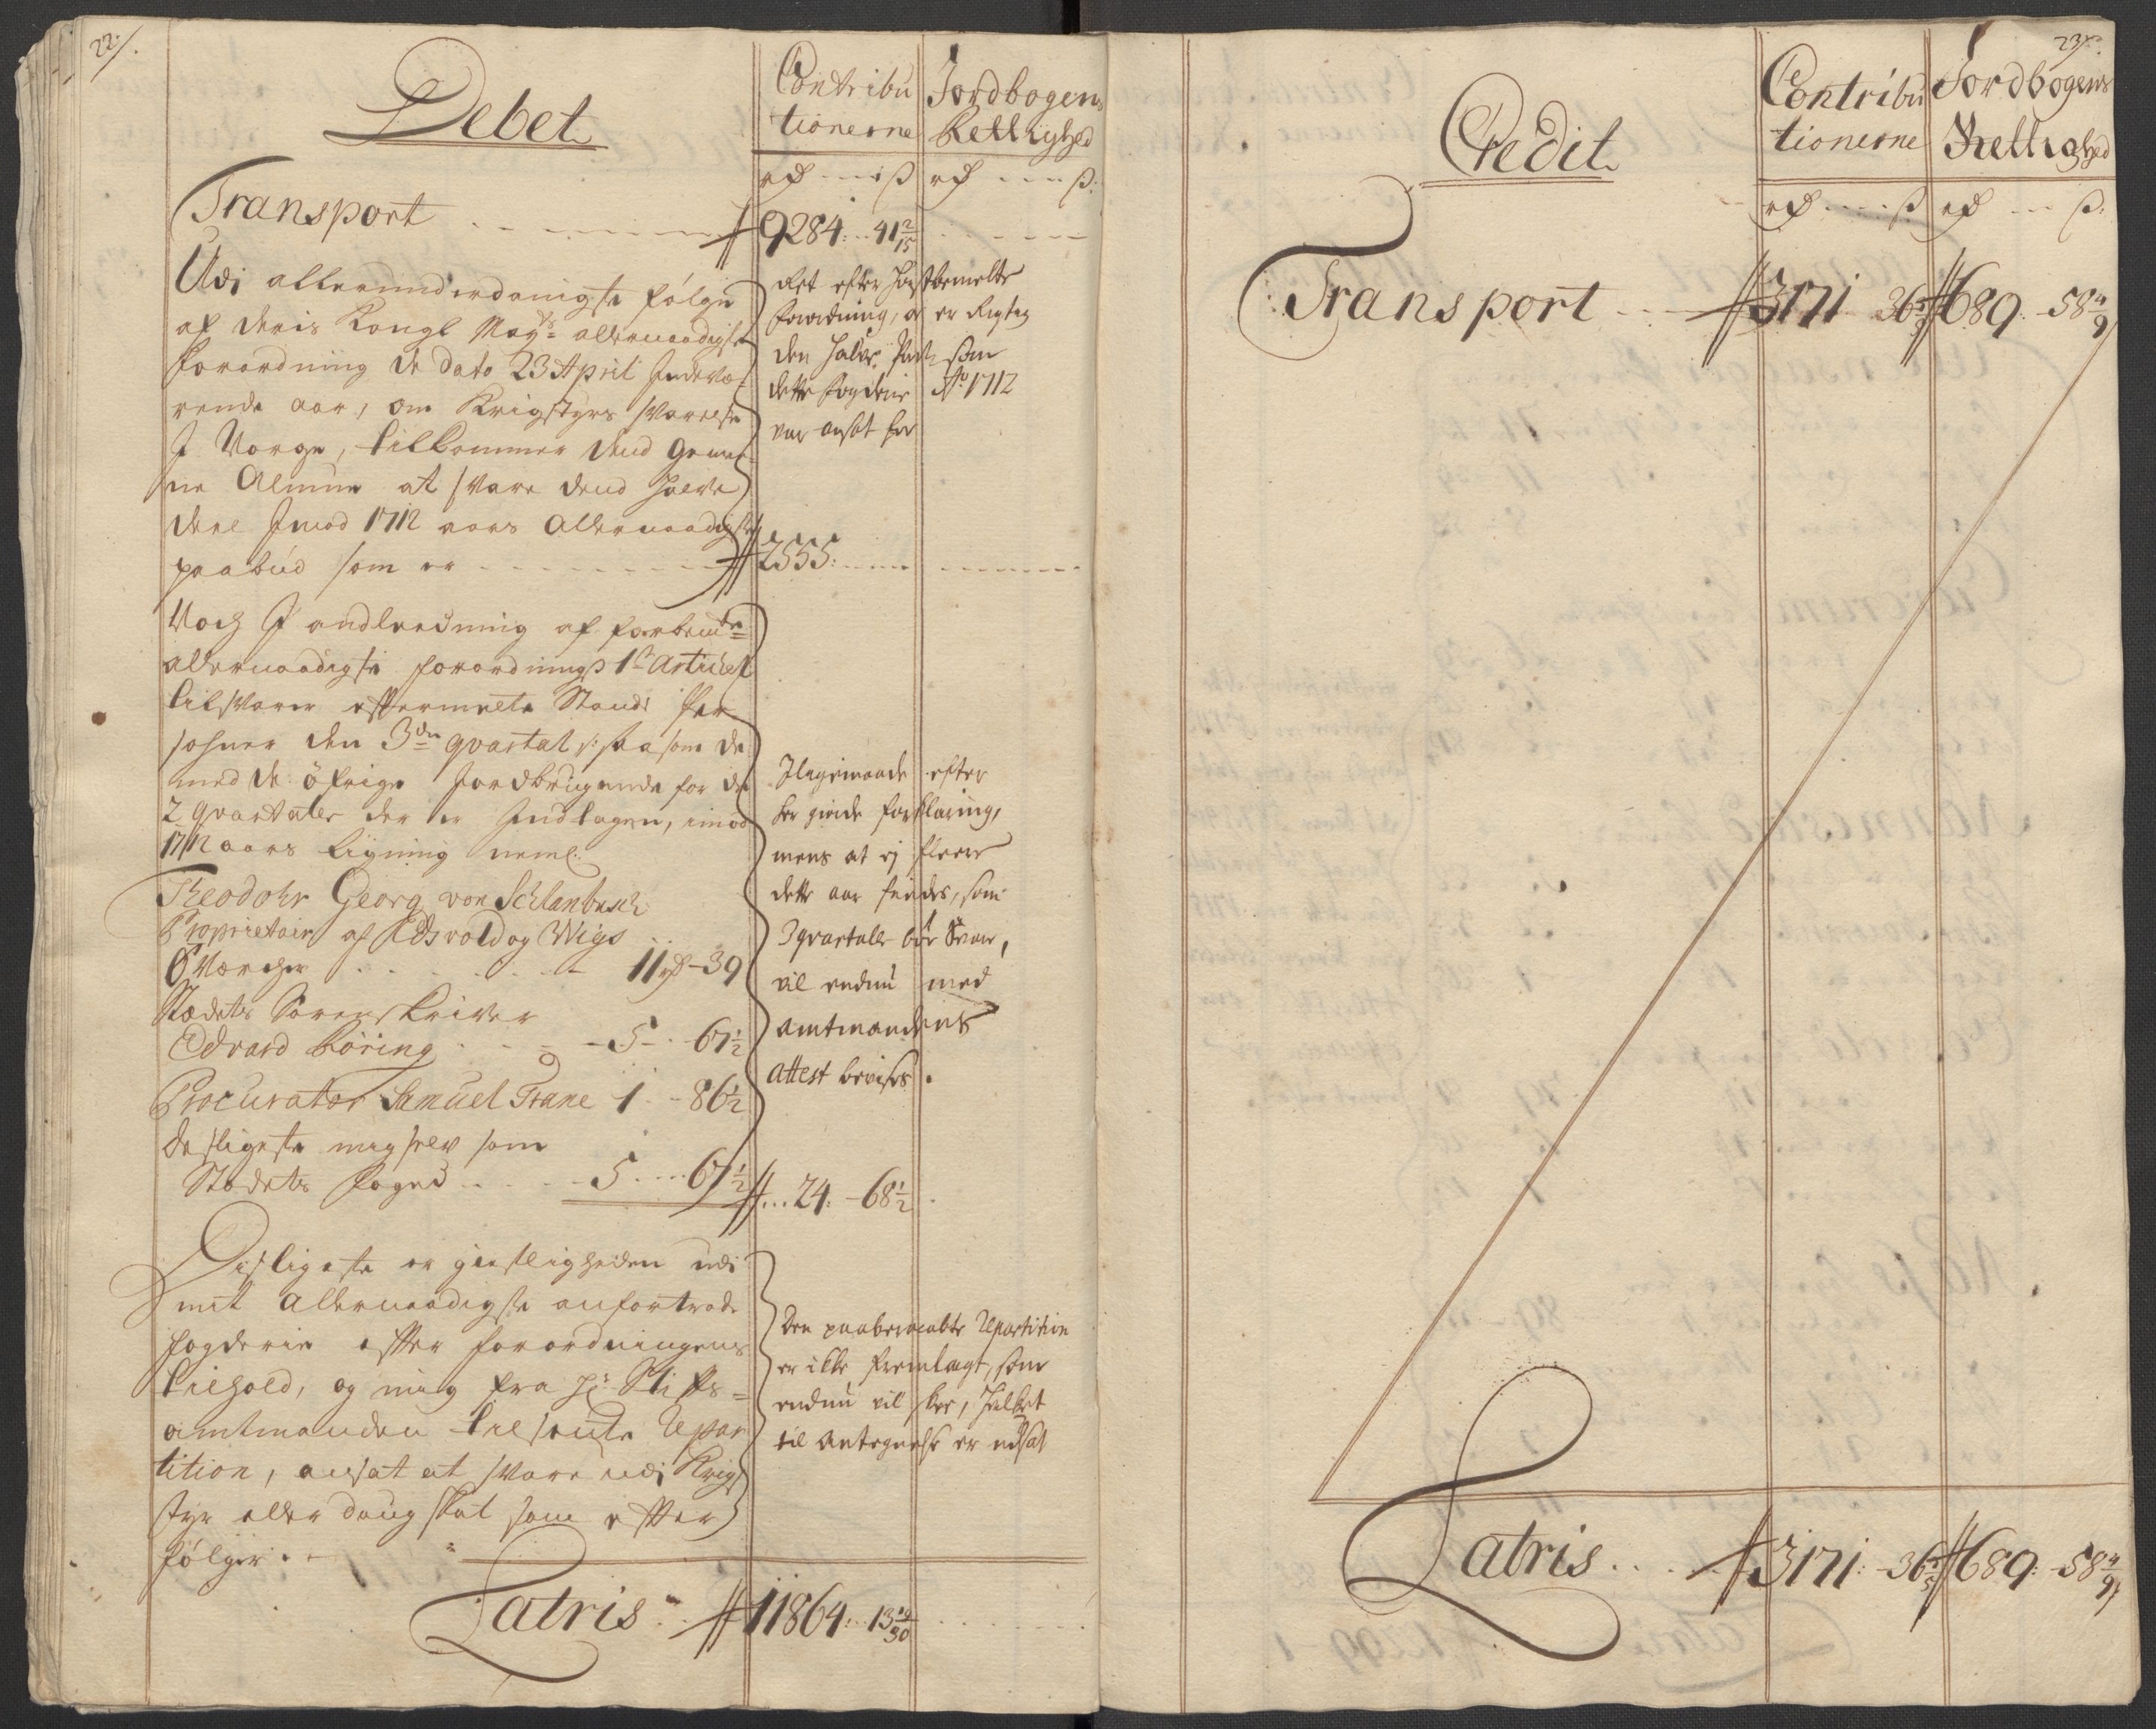 22./.
Debet
Contribu
tionerne
Jordbogens
Rettighed
rd ß rd ß:
Transport 9284: 41 2/15
Udj allerunderdanigste følge
af deris Kongl May:ts allernaadigste
forordning de dato 23 April Indevæ-
rende aar, om Krigstyrs svarelse
J Norge, tilkommer dend gemee-
ne Almue at svare dend halve
deel Jmod 1712 aars Allernaadigste
paabud som er 2555:
Ret efter høystbemelte
forordning, og er Rigtig
den halve Part som
dette fogderie Ao 1712
var ansat for
Noch J andleedning af forbemte
allernaadigste forordnings 1te Articel
tilsvarer effermelte Stands Per
sohner den 3de qvartal, saasom de
med de øfrige Jordbrugende for de
2 qvartaler der er Jndtagen, imod
1712 aars ligning neml:
Theodohr Georg von Schlanbusch
Proprietair af Edsvold og Wigs
Værcher 11 rd - 39
Stædets Sorenskriver
Edvard Røring 5 - 67 1/2
Procurator Samuel Trane 1 - 86 1/2
desligeste mig selv som
Stedets foged 5 67 1/2 24: - 68 1/2
Jligemaade efter
her giorde forklaring,
mens at ej fleere
dette aar findes, som
3 qvartaler bør Svare,
vil endnu med
amtmandens
Attest bevises.
Desligeste er geistligheden udi
mit Allernaadigste anfortrode
fogderie effter forordningens
tilhold, og mig fra Hr: Stifts-
amtmanden tilsendte Repar
tition, ansat at svare udj Krigs
styr eller dongskat som effter
følger.
Den paaberaabte Repartition
er ikke fremlagt, som
endnu vil skee, hvilket
til Antegnelse er udsat
Latris 11864: 13 19/30
23/.
Credit
Contribu
tionerne
Jordbogens
Rettighed
rd ß rd ß:
Transport 3171 36 2/5 689 - 58 4/9
Latris 3171: - 36 2/5 689: - 58 4/9